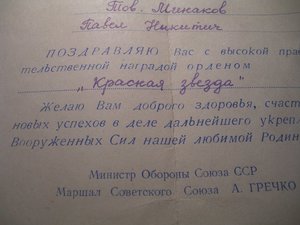 Тов. Минаков
Павел Никитич
ПОЗДРАВЛЯЮ Вас с высокой пра
тельственной наградой орденом
„Красная звезда"
Желаю Вам доброго здоровья, счаст
новых успехов в деле дальнейшего укреп
Вооруженных Сил нашей любимой Родин
Министр Обороны Союза ССР
Маршал Советского Союза А. ГРЕЧКО